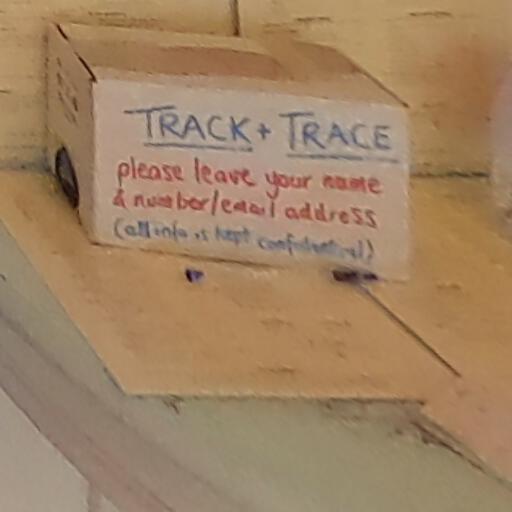 TRACK + TRACE
please leave your name
& number/email address
(all info is kept confidential)